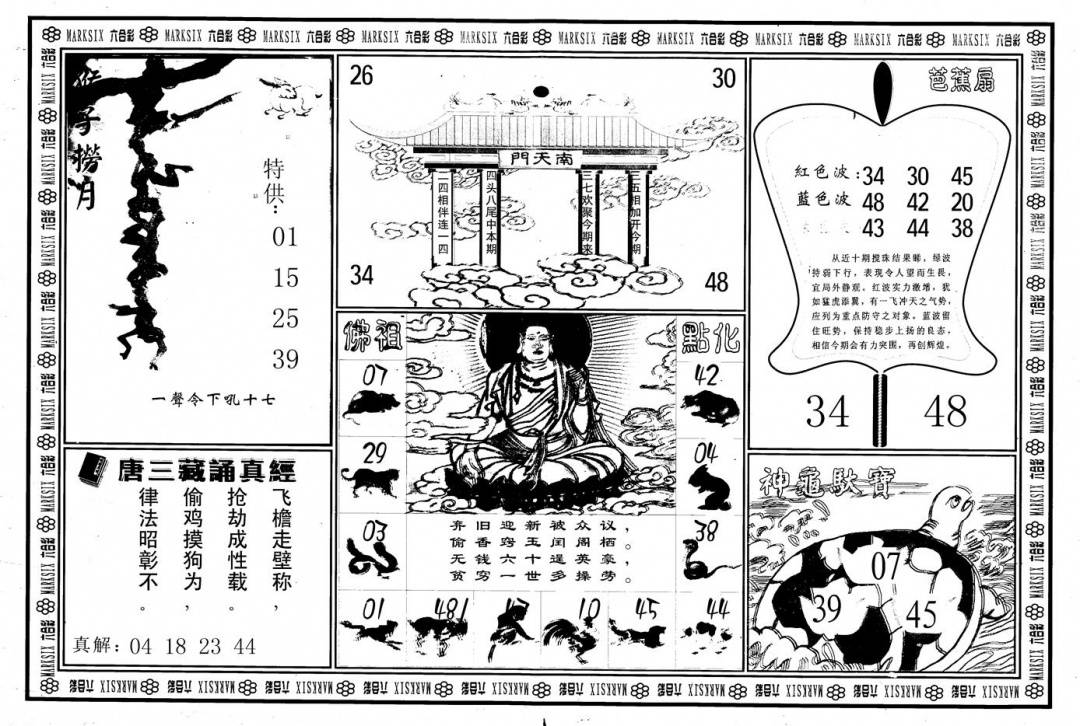 MARKSIX 六合彩 MARKSIX 六合彩 MARKSIX 六合彩 MARKSIX 六合彩 MARKSIX 六合彩 MARKSIX 六合彩 MARKSIX 六合彩 MARKSIX 六合彩 MARKSIX 六合彩 MARKSIX 六合彩
猴子撈月
特供:
01
15
25
39
一聲令下吼十七
唐三藏誦真經
飞檐走壁称,
抢劫成性载。
偷鸡摸狗为,
律法昭彰不。
真解: 04 18 23 44
26
30
南天門
二四相伴连一四
四头八尾中本期
三七欢聚今期来
三五相加开今期
34
48
佛祖
點化
07
42
29
04
03
38
弃旧迎新被众议,
偷香窃玉闰阁栖。
无钱六十逞英豪,
贫穷一世多操劳。
01
10
45
44
芭蕉扇
紅色波: 34 30 45
藍色波 48 42 20
43 44 38
从近十期搅珠结果睇,绿波
特弱下行,表现令人望而生畏,
宜局外静观。红波实力激增,犹
如猛虎添翼,有一飞冲天之气势,
应列为重点防守之对象。蓝波留
住旺势,保持稳步上扬的良态,
相信今期会有力突围,再创辉煌。
34
48
神龜馱寶
07
39
45